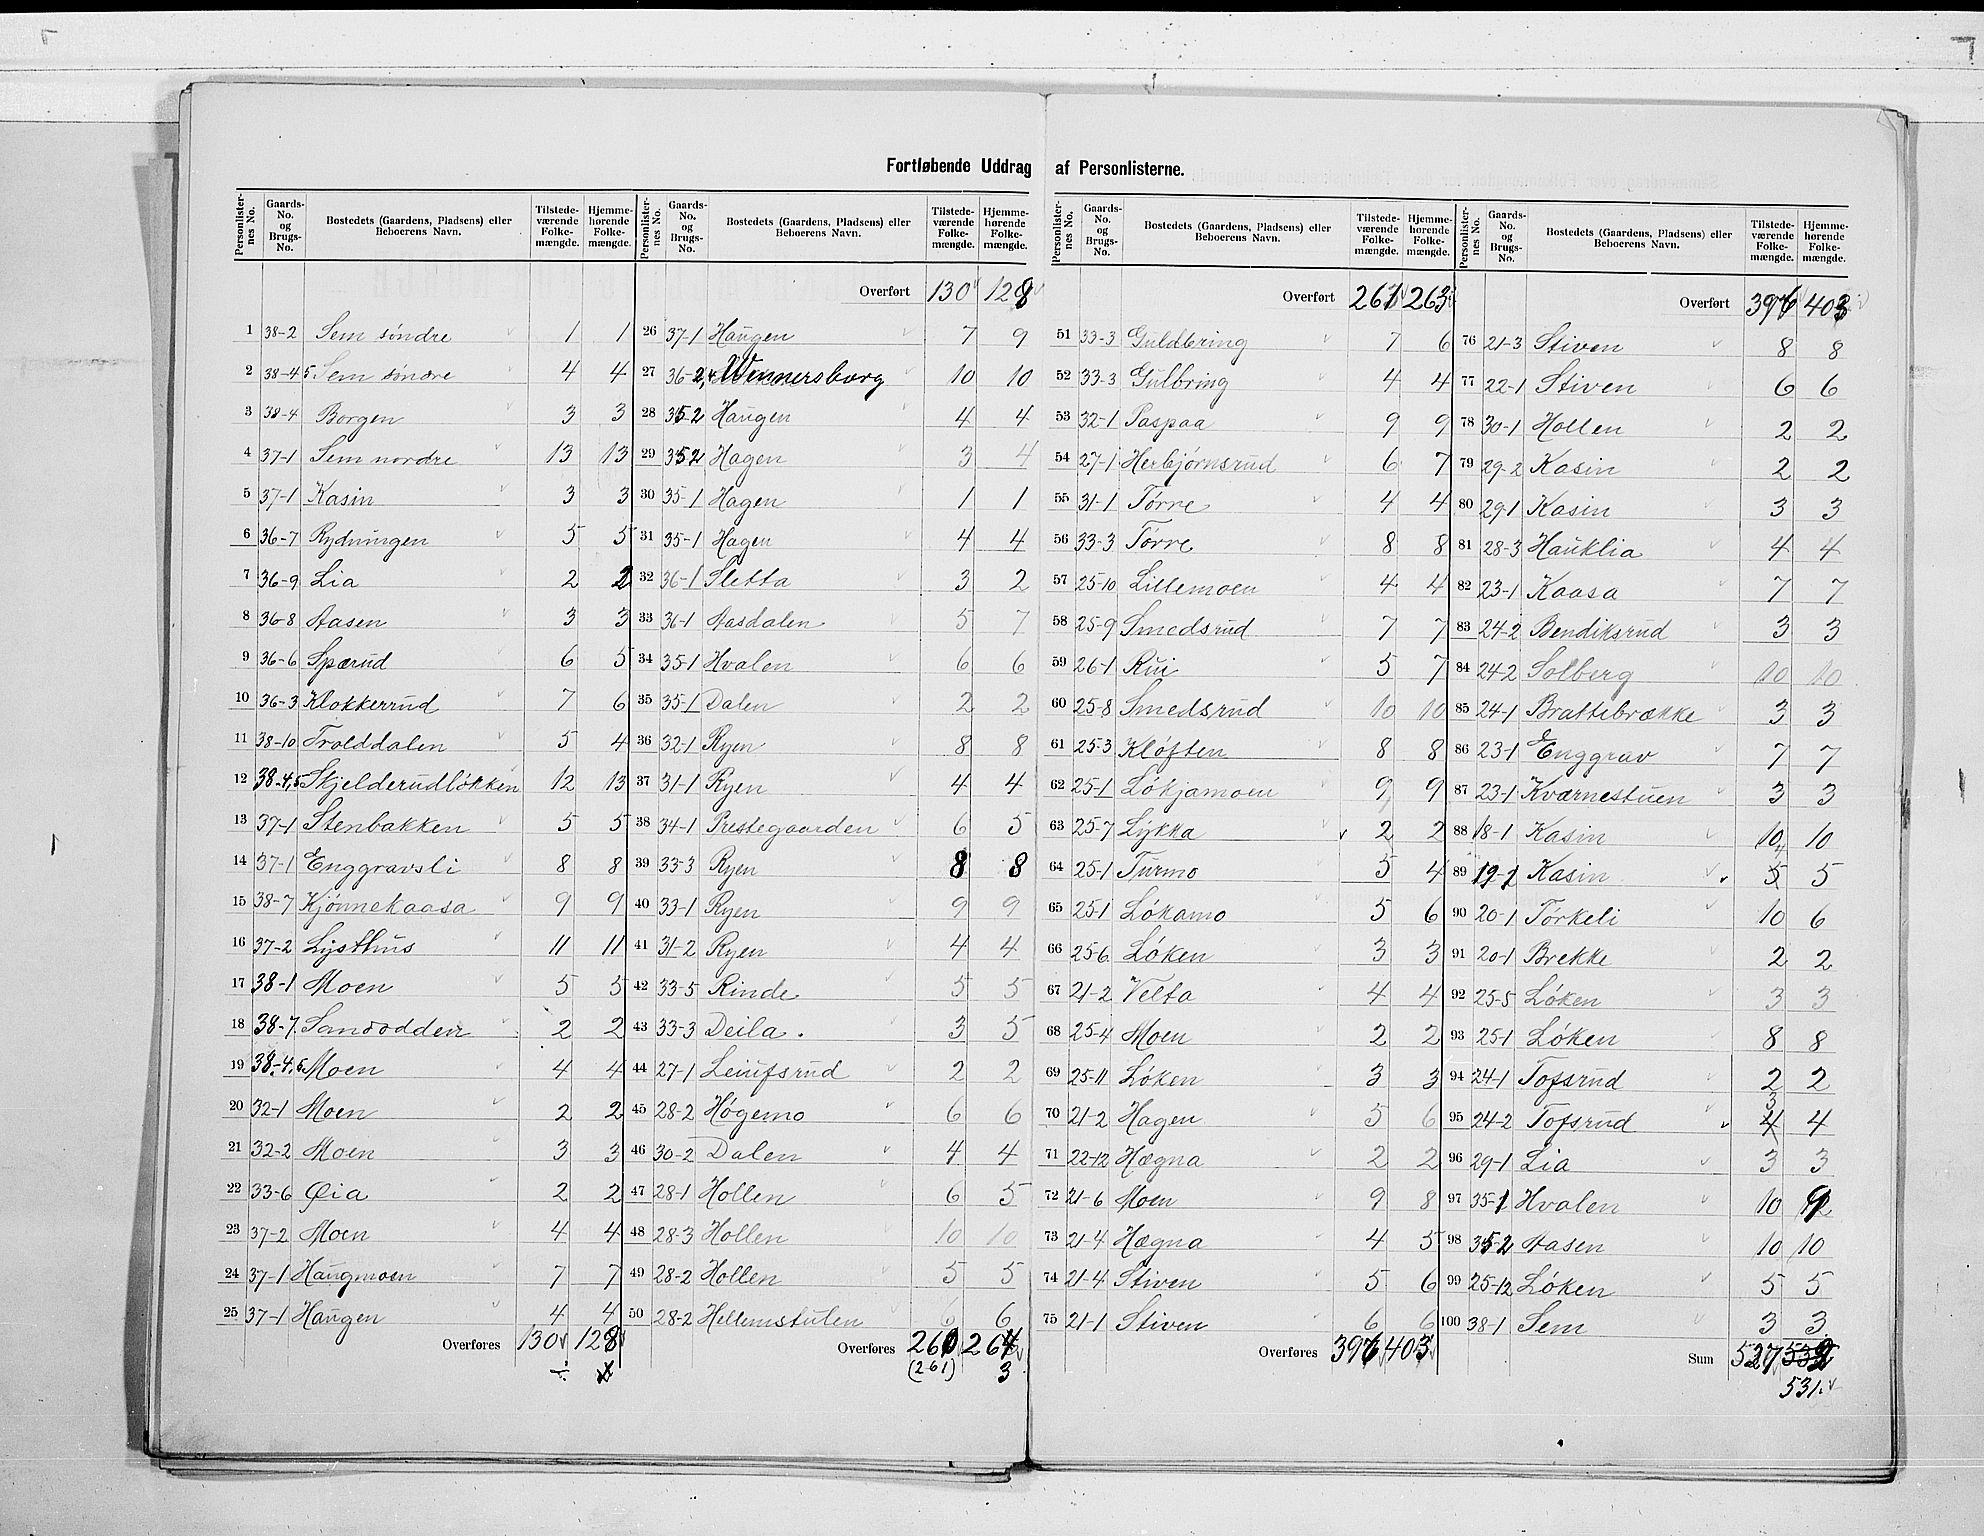 Fortløbende Uddrag af Personlisterne.
Personlisternes No. Gaards-No. og Brugs-No. Bostedets (Gaardens, Pladsens) eller Beboerens Navn. Tilstedeværende Folkemængde. Hjemmehørende Folkemængde.
1 38-2 Sem søndre 1 1
2 38-4 5 Sem søndre 4 4
3 38-4 Borgen 3 3
4 37-1 Sem nordre 13 13
5 37-1 Kasin 3 3
6 36-7 Rydningen 5 5
7 36-9 Lia 2 2
8 36-8 Aasen 3 3
9 36-6 Spærud 6 5
10 36-3 Klokkerrud 7 6
11 38-10 Trolddalen 5 4
12 38-4,5 Skjelderudløkken 12 13
13 37-1 Stenbakken 5 5
14 37-1 Enggravsli 8 8
15 38-7 Kjønnekaasa 9 9
16 37-2 Lysthus 11 11
17 38-1 Moen 5 5
18 38-7 Sandodden 2 2
19 38-4,5 Moen 4 4
20 32-1 Moen 2 2
21 32-2 Moen 3 3
22 33-6 Øia 2 2
23 37-2 Moen 4 4
24 37-1 Haugmoen 7 7
25 37-1 Haugen 4 4
Overføres 130 128
Personlisternes No. Gaards-No. og Brugs-No. Bostedets (Gaardens, Pladsens) eller Beboerens Navn. Tilstedeværende Folkemængde. Hjemmehørende Folkemængde.
Overført 130 128
26 37-1 Haugen 7 9
27 36-2,4 Wennersborg 10 10
28 35-2 Haugen 4 4
29 35-2 Hagen 3 4
30 35-1 Hagen 1 1
31 35-1 Hagen 4 4
32 36-1 Sletta 3 2
33 36-1 Aasdalen 5 7
34 35-1 Hvalen 6 6
35 35-1 Dalen 2 2
36 32-1 Ryen 8 8
37 31-1 Ryen 4 4
38 34-1 Prestegaarden 6 5
39 33-3 Ryen 8 8
40 33-1 Ryen 9 9
41 31-2 Ryen 4 4
42 33-5 Rinde 5 5
43 33-3 Deila . 3 5
44 27-1 Leiufsrud 2 2
45 28-2 Høgemo 6 6
46 30-2 Dalen 4 4
47 28-1 Hollen 6 5
48 28-3 Hollen 10 10
49 28-2 Hollen 5 5
50 28-2 Hellemstulen 6 6
Overføres 260 264
(261) 3
Personlisternes No. Gaards-No. og Brugs-No. Bostedets (Gaardens, Pladsens) eller Beboerens Navn. Tilstedeværende Folkemængde. Hjemmehørende Folkemængde.
Overført 261 263
51 33-3 Guldbring 7 6
52 33-3 Gulbring 4 4
53 32-1 Paspaa 9 9
54 27-1 Herbjørnsrud 6 7
55 31-1 Tørre 4 4
56 33-3 Tørre 8 8
57 25-10 Lillemoen 4 4
58 25-9 Smedsrud 7 7
59 26-1 Rui 5 7
60 25-8 Smedsrud 10 10
61 25-3 Kløften 8 8
62 25-1 Løkjamoen 9 9
63 25-7 Lykka 2 2
64 25-1 Turmo 5 4
65 25-1 Løkamo 5 6
66 25-6 Løken 3 3
67 21-2 Velta 4 4
68 25-4 Moen 2 2
69 25-11 Løken 3 3
70 21-2 Hagen 5 6
71 22-12 Hægna 2 2
72 21-6 Moen 9 8
73 21-4 Hægna 4 5
74 21-4 Stiven 5 6
75 21-1 Stiven 6 6
Overføres 396 403
Personlisternes No. Gaards-No. og Brugs-No. Bostedets (Gaardens, Pladsens) eller Beboerens Navn. Tilstedeværende Folkemængde. Hjemmehørende Folkemængde.
Overført 396 403
76 21-3 Stiven 8 8
77 22-1 Stiven 6 6
78 30-1 Hollen 2 2
79 29-2 Kasin 2 2
80 29-1 Kasin 3 3
81 28-3 Hauklia 4 4
82 23-1 Kaasa 7 7
83 24-2 Bendiksrud 3 3
84 24-2 Solberg 10 10
85 24-1 Brattebrække 3 3
86 23-1 Enggrav 7 7
87 23-1 Kværnestuen 3 3
88 18-1 Kasin 10 10
89 19-1 Kasin 5 4 5
90 20-1 Tørkeli 10 6
91 20-1 Brekke 2 2
92 25-5 Løken 3 3
93 25-1 Løken 8 8
94 24-1 Tofsrud 2 2
95 24-2 Tofsrud 4 3 4
96 29-1 Lia 3 3
97 35-1 Hvalen 10
98 35-2 Aasen 10 10
99 25-12 Løken 5 5
100 38-1 Sem 3 3
Sum 527 532
531.